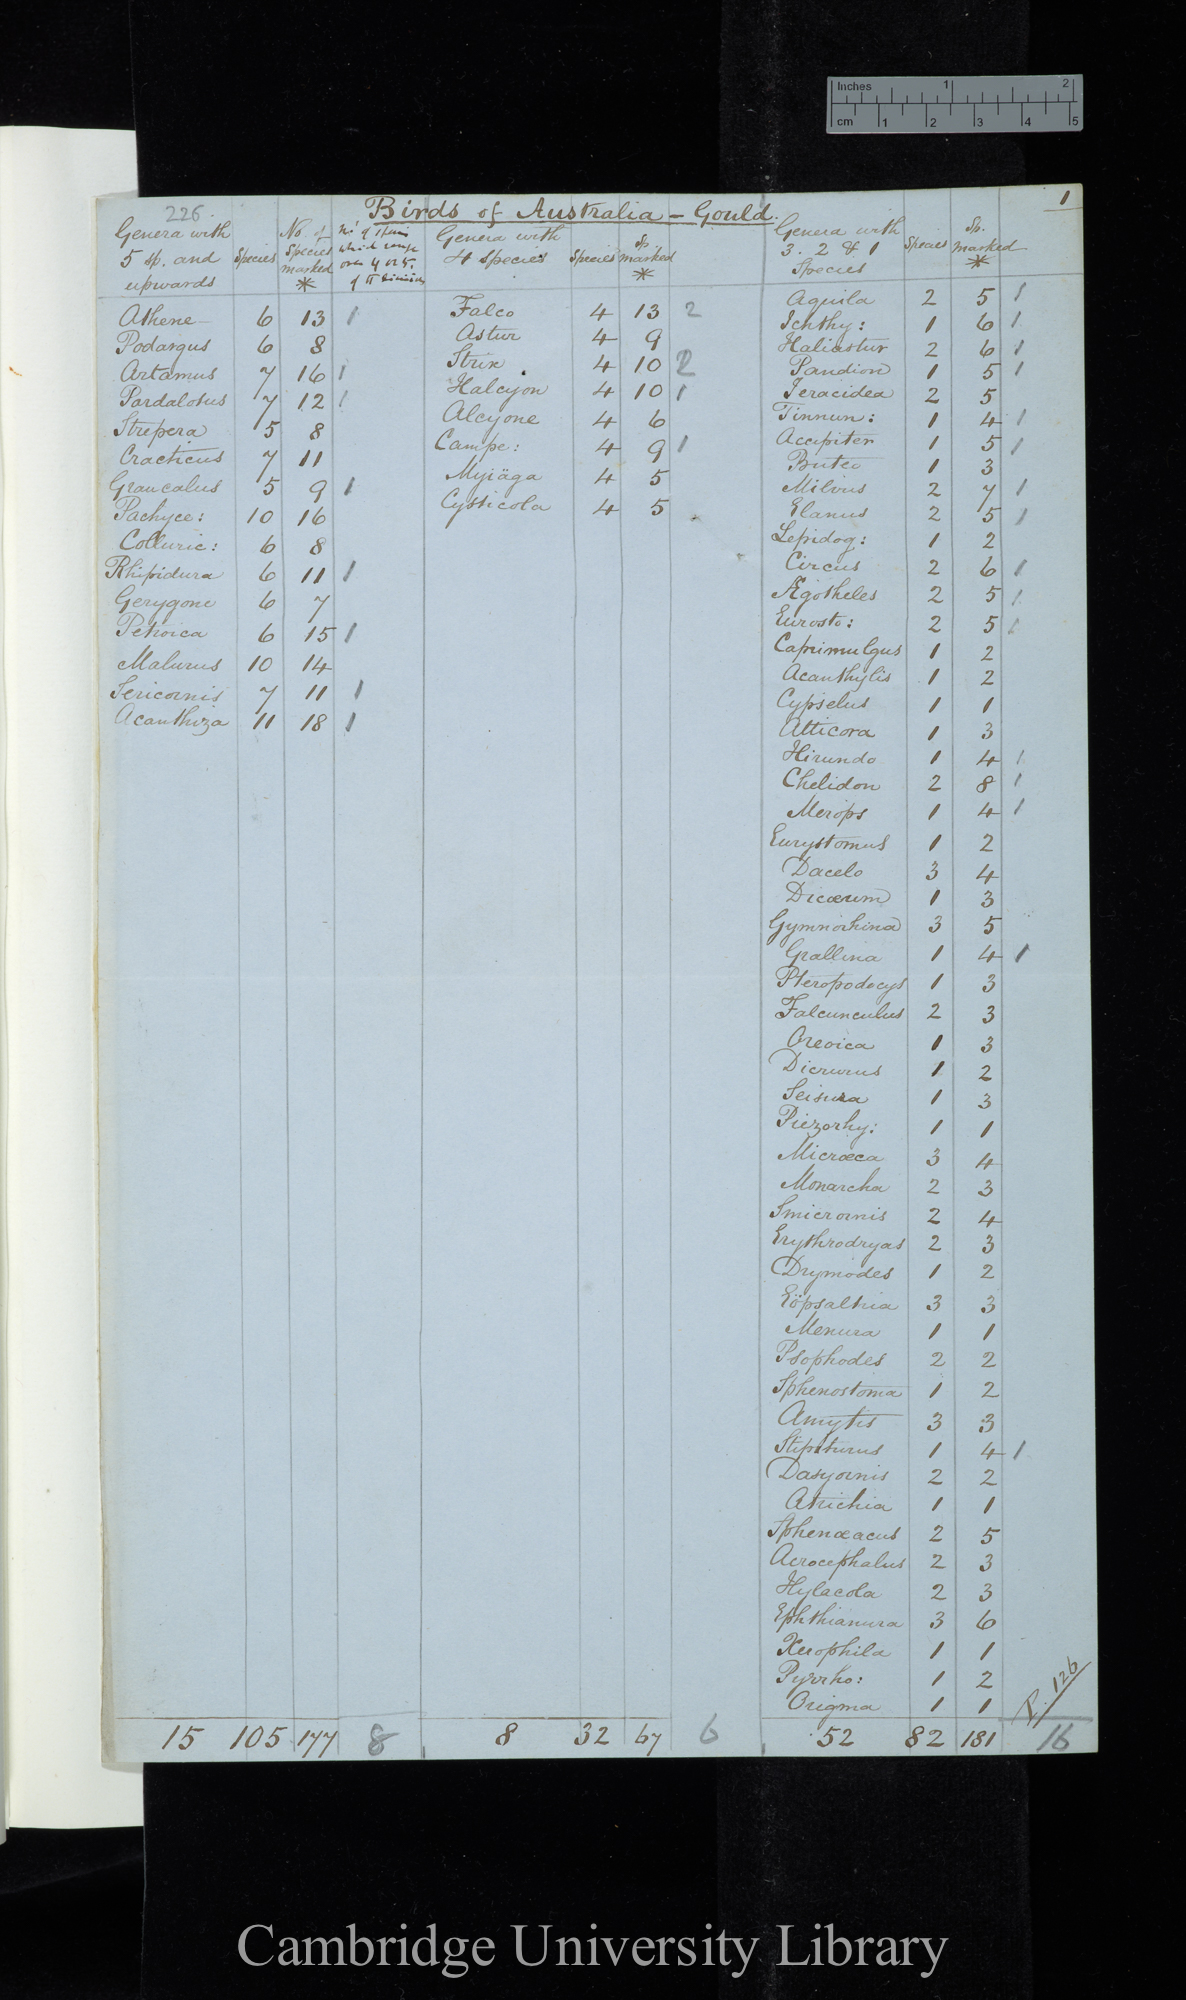 Inches 1 2
cm 1 2 3 4 5
1
226.
Birds of Australia – Gould.
Genera with 5 sp. and upwards | Species | No. of Species marked * | No. of species which range over 4 or 5 of divisions
Athene 6 13 1
Podargus 6 8
Artamus 7 16 1
Pardalotus 7 12 1
Strepera 5 8
Cracticus 7 11
Graucalus 5 9 1
Pachyce: 10 16
Colluric: 6 8
Rhipidura 6 11 1
Gerygone 6 7
Petroica 6 15 1
Malurus 10 14
Sericornis 7 11 1
Acanthiza 11 18 1
15 105 177 8
Genera with 4 species | Species | Sp. marked *
Falco 4 13 2
Astur 4 9
Strix 4 10 2
Halcyon 4 10 1
Alcyone 4 6
Campe: 4 9 1
Myiäga 4 5
Cysticola 4 5
8 32 67 6
Genera with 3. 2 & 1 Species | Species | Sp. marked *
Aquila 2 5 1
Ichthy: 1 6 1
Haliastur 2 6 1
Pandion 1 5 1
Ieracidea 2 5
Tinnun: 1 4 1
Accipiter 1 5 1
Buteo 1 3
Milvus 2 7 1
Elanus 2 5 1
Lepidog: 1 2
Circus 2 6 1
Ægotheles 2 5 1
Eurosto: 2 5 1
Caprimulgus 1 2
Acanthylis 1 2
Cypselus 1 1
Atticora 1 3
Hirundo 1 4 1
Chelidon 2 8 1
Merops 1 4 1
Eurystomus 1 2
Dacelo 3 4
Dicæum 1 3
Gymnorhina 3 5
Grallina 1 4 1
Pteropodocys 1 3
Falcunculus 2 3
Oreoica 1 3
Dicrurus 1 2
Seisura 1 3
Piezorhy: 1 1
Micræca 3 4
Monarcha 2 3
Smicrornis 2 4
Erythrodryas 2 3
Drymodes 1 2
Eöpsaltria 3 3
Menura 1 1
Psophodes 2 2
Sphenostoma 1 2
Amytis 3 3
Stipiturus 1 4 1
Dasyornis 2 2
Atrichia 1 1
Sphenæacus 2 5
Acrocephalus 2 3
Hylacola 2 3
Ephthianura 3 6
Xerophila 1 1
Pyrrho: 1 2
Origma 1 1
P. 126
52 82 181 16
Cambridge University Library